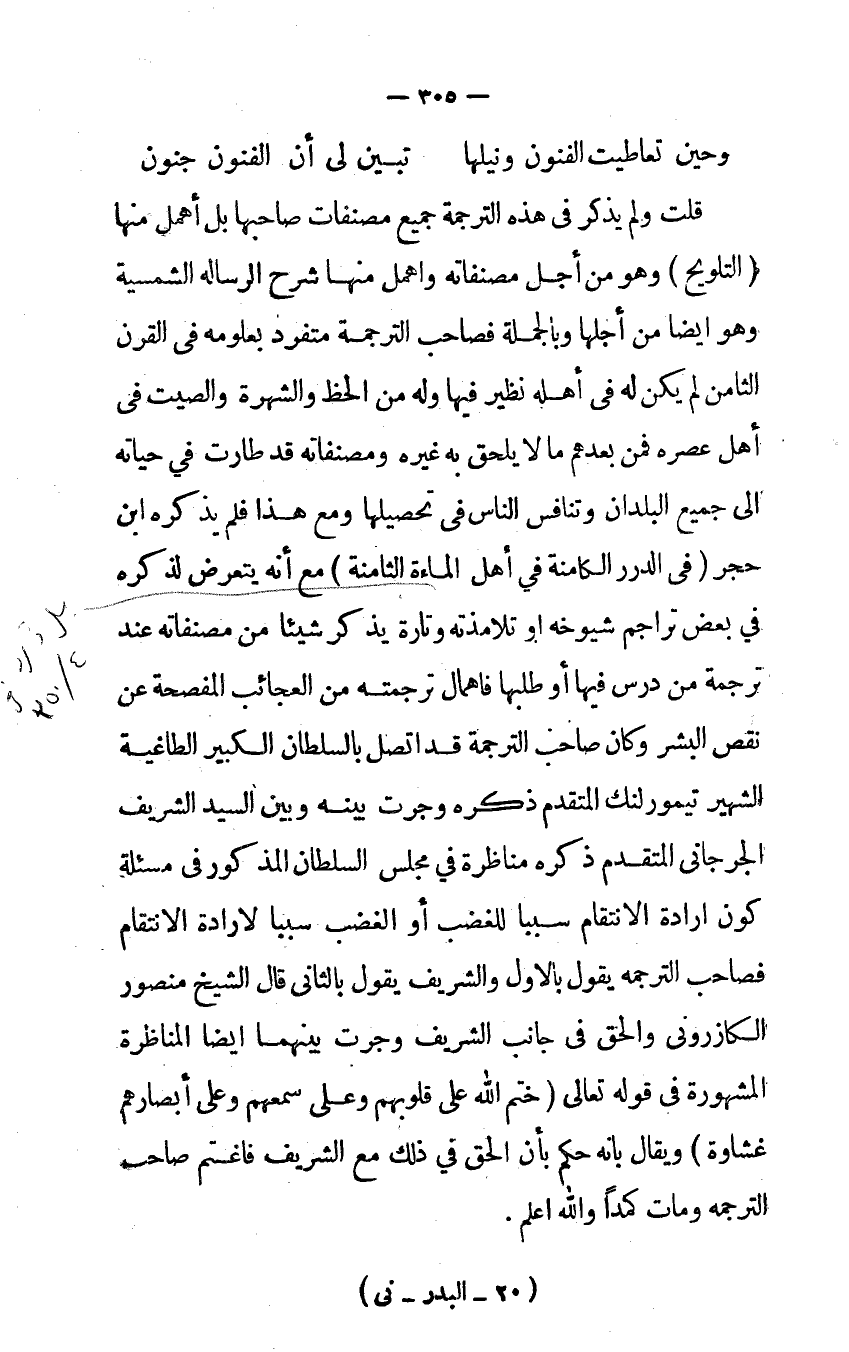 — ٣٠٥ —
وحين تعاطيت الفنون ونيلها تبـين لى أن الفنون جنون
قلت ولم يذكر فى هذه الترجمة جميع مصنفات صاحبها بل أهمل منها
( التلويح ) وهو من أجـل مصنفاته واهمل منهـا شرح الرساله الشمسية
وهو ايضا من أجلها وبالجمـلة فصاحب الترجمـة متفرد بعلومه فى القرن
الثامن لم يكن له فى أهـله نظير فيها وله من الحظ والشهرة والصيت فى
أهل عصره فمن بعدهم ما لا يلحق به غيره ومصنفاته قد طارت في حياته
الى جميع البلدان وتنافس الناس فى تحصيلها ومع هـذا فلم يذكره ابن
حجر ( فى الدرر الكامنة في أهل المـاءة الثامنة ) مع أنه يتعرض لذكره
في بعض تراجم شيوخه او تلامذته وتارة يذكر شيئا من مصنفاته عند
ترجمة من درس فيها أو طلبها فاهمال ترجمتـه من العجائب المفصحة عن
نقص البشر وكان صاحب الترجمة قد اتصل بالسلطان الكبير الطاغية
الشهير تيمورلنك المتقدم ذكره وجرت بينـه وبين السيد الشريف
الجرجانى المتقـدم ذكره مناظرة في مجلس السلطان المذكور فى مسئلة
كون ارادة الانتقام سـببا للغضب أو الغضب سببا لارادة الانتقام
فصاحب الترجمه يقول بالاول والشريف يقول بالثانى قال الشيخ منصور
الكازرونى والحق فى جانب الشريف وجرت بينهمـا ايضا المناظرة
المشهورة فى قوله تعالى ( ختم الله على قلوبهم وعـلى سمعهم وعلى أبصارهم
غشاوة ) ويقال بانه حكم بأن الحق في ذلك مع الشريف فاغـتم صاحب
الترجمه ومات كمداً والله اعلم .
( ٢٠ ـ البدر ـ نى )
٣٥٠/٤